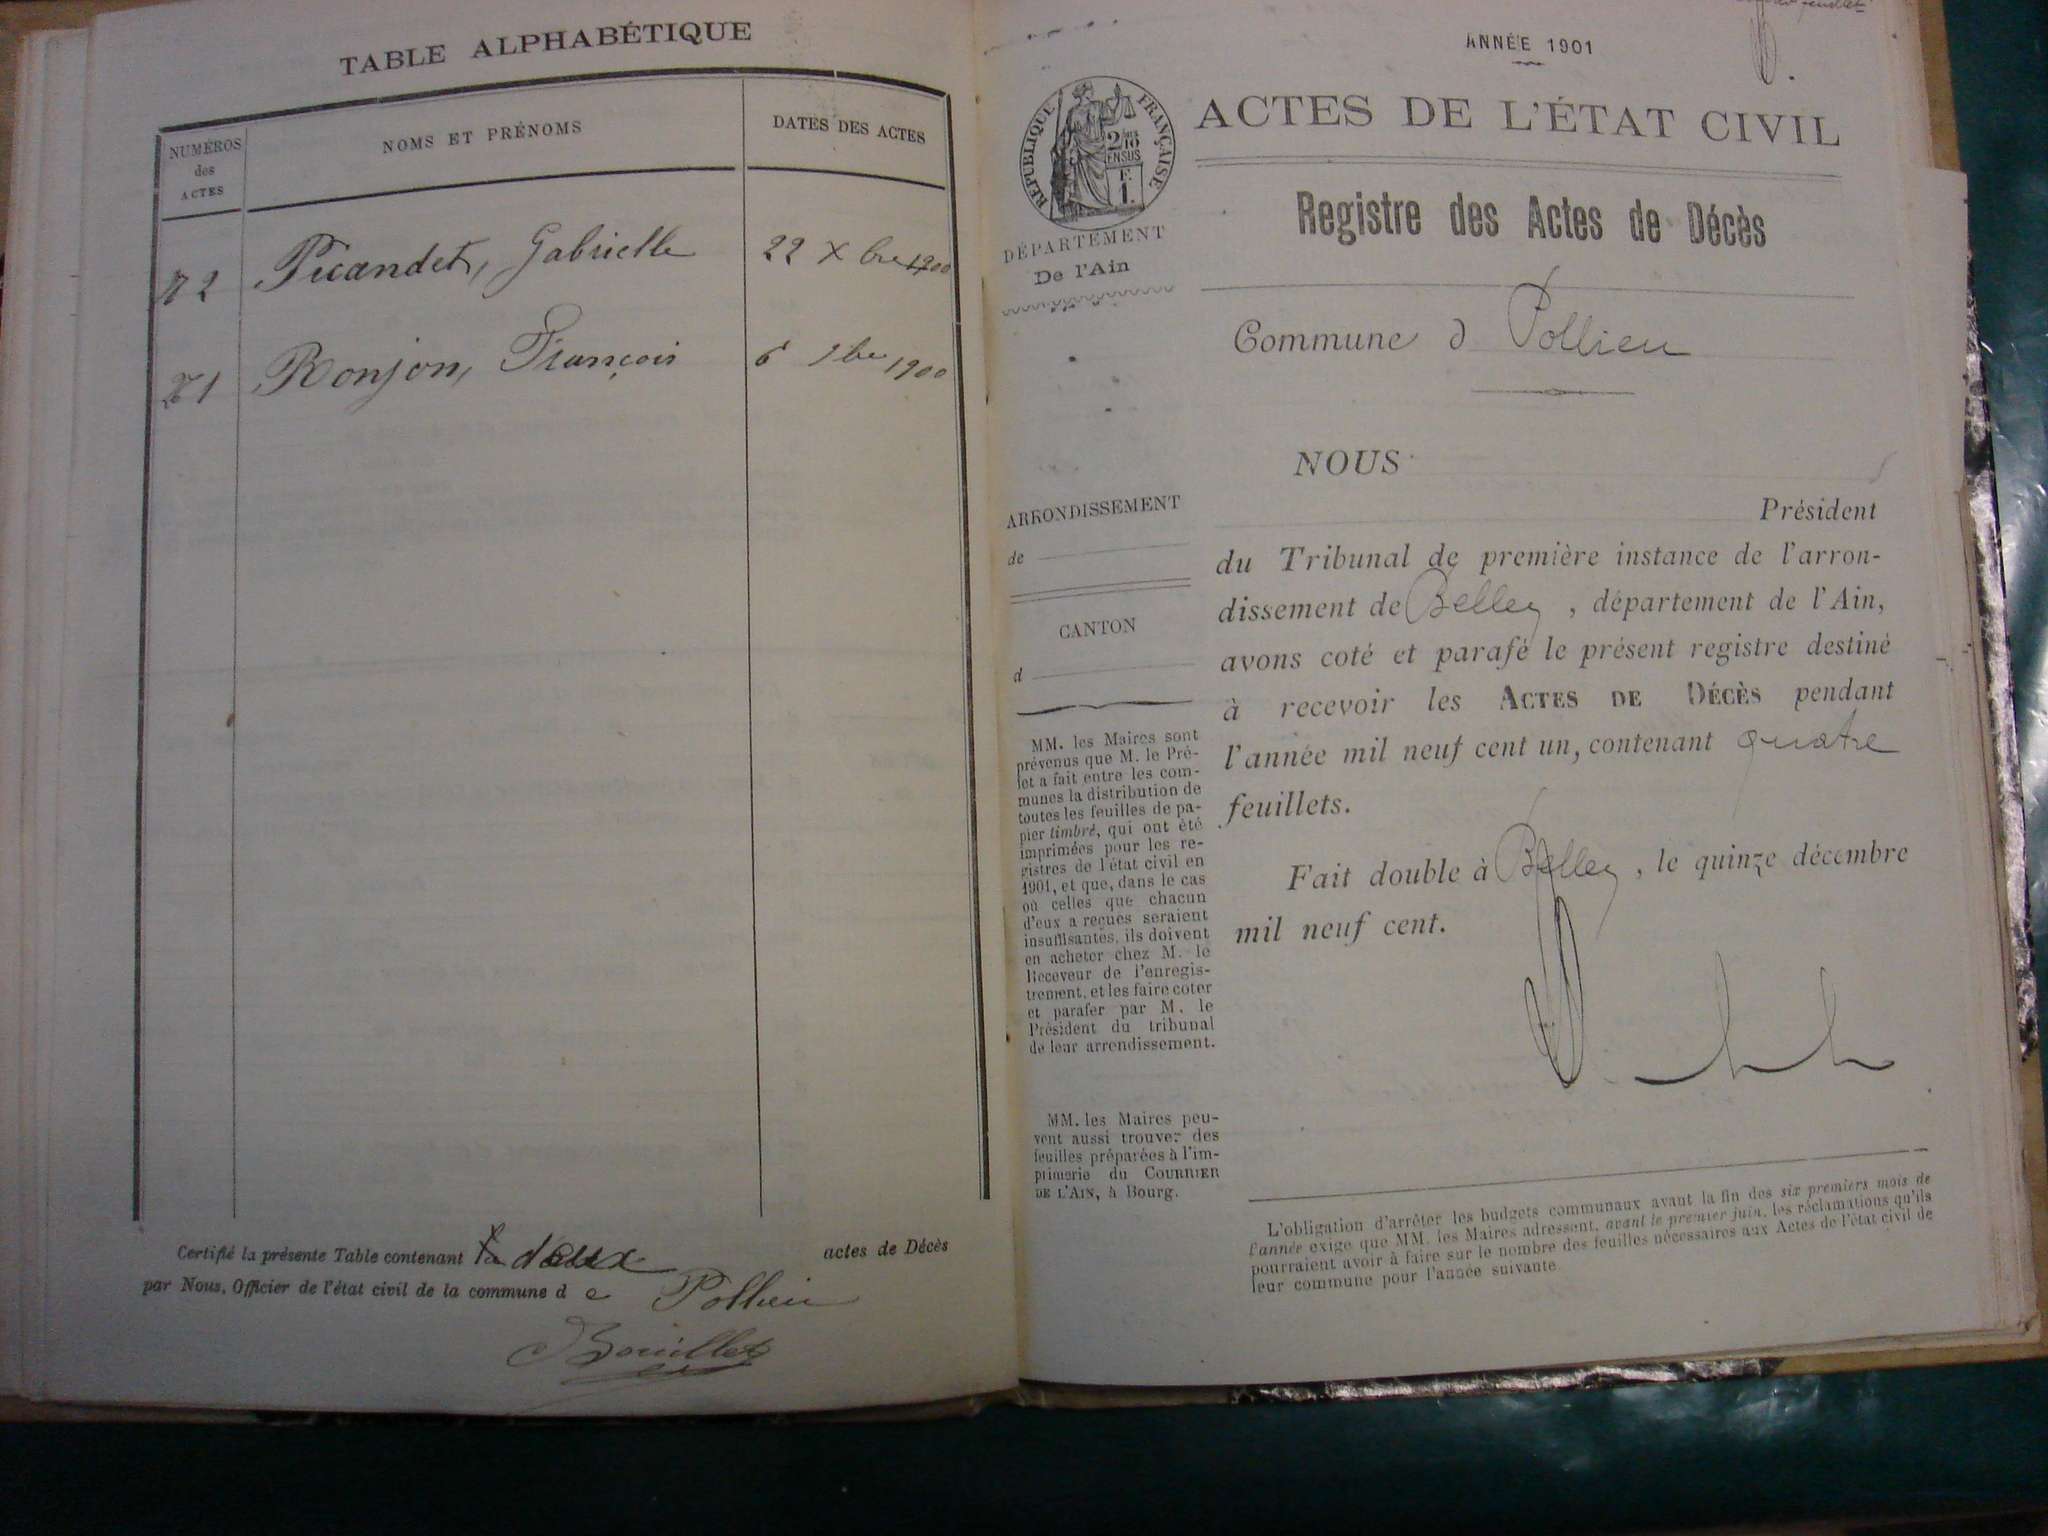 TABLE ALPHABÉTIQUE
NUMÉROS
des
ACTES
NOMS ET PRÉNOMS
DATES DES ACTES
Picandet, Gabrielle
22 Xbre 1900
Ronjon, François
6 1900
Certifié la présente Table contenant deux actes de Décès
par Nous, Officier de l'état civil de la commune de Pollieu
Bouillet
feuillet
ANNÉE 1901
RÉPUBLIQUE FRANÇAISE
2/10
EN SUS
F.
1.
DÉPARTEMENT
De l'Ain
ACTES DE L'ÉTAT CIVIL
Registre des Actes de Décès
Commune d Pollieu
NOUS
Président
du Tribunal de première instance de l'arron-
dissement de Belley, département de l'Ain,
avons coté et parafé le présent registre destiné
à recevoir les ACTES DE DÉCÈS pendant
l'année mil neuf cent un, contenant quatre
feuillets.
Fait double à Belley, le quinze décembre
mil neuf cent.
ARRONDISSEMENT
de
CANTON
d
MM. les Maires sont
prévenus que M. le Pré-
fet a fait entre les com-
munes la distribution de
toutes les feuilles de pa-
pier timbré, qui ont été
imprimées pour les re-
gistres de l'état civil en
1901, et que, dans le cas
où celles que chacun
d'eux a reçues seraient
insuffisantes, ils doivent
en acheter chez M. le
Receveur de l'enregis-
trement, et les faire coter
et parafer par M. le
Président du tribunal
de leur arrondissement.
MM. les Maires peu-
vent aussi trouver des
feuilles préparées à l'im-
primerie du COURRIER
DE L'AIN, à Bourg.
L'obligation d'arrêter les budgets communaux avant la fin des six premiers mois de
l'année exige que MM. les Maires adressent, avant le premier juin, les réclamations qu'ils
pourraient avoir à faire sur le nombre des feuilles nécessaires aux Actes de l'état civil de
leur commune pour l'année suivante.